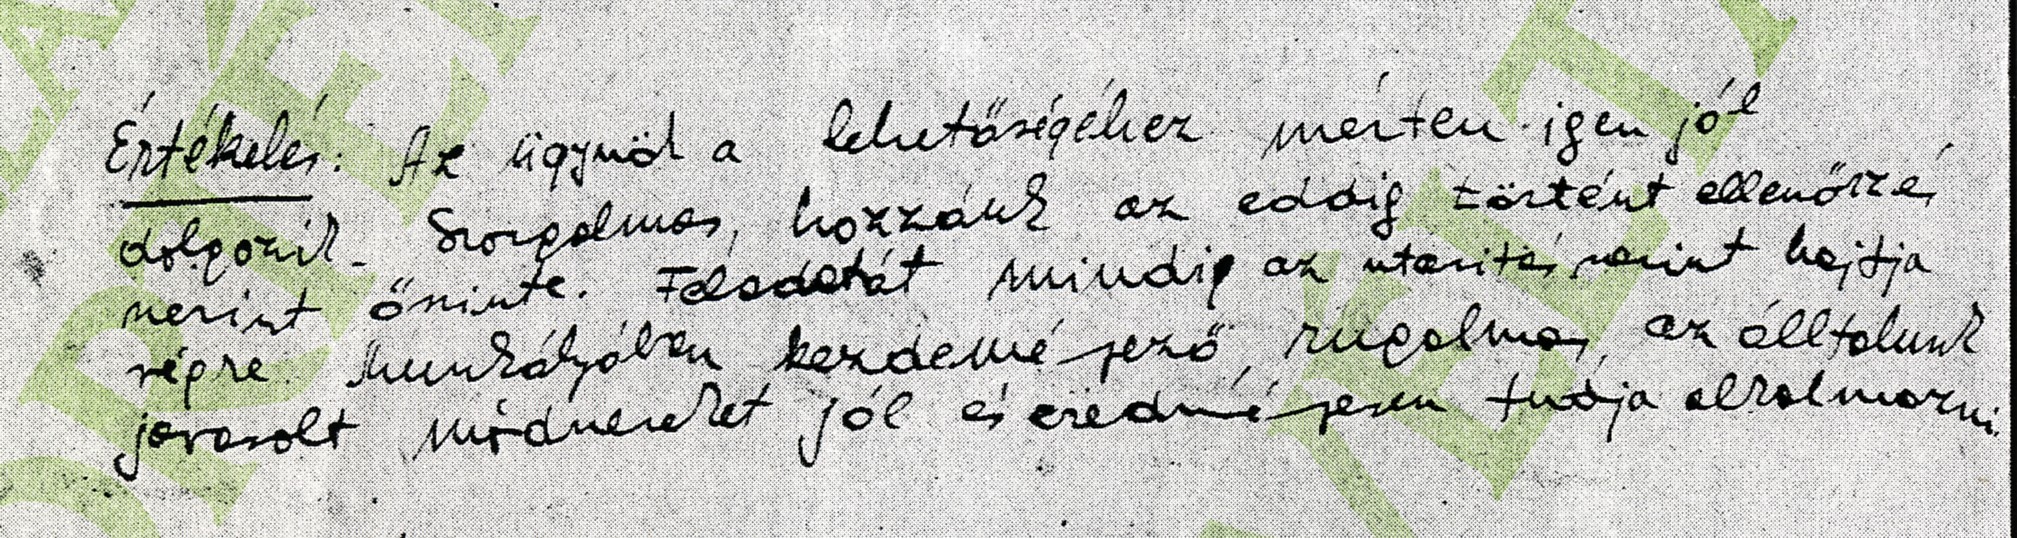 Értékelés: Az ügynök a lehetőségéhez mérten igen jól
dolgozik. Szorgalmas, hozzánk az eddig történt ellenőrzés
szerint őszinte. Feladatát mindig az utasítás szerint hajtja
végre. Munkájában kezdeményező, rugalmas, az álltalunk
javasolt módszereket jól és eredményesen tudja alkalmazni.